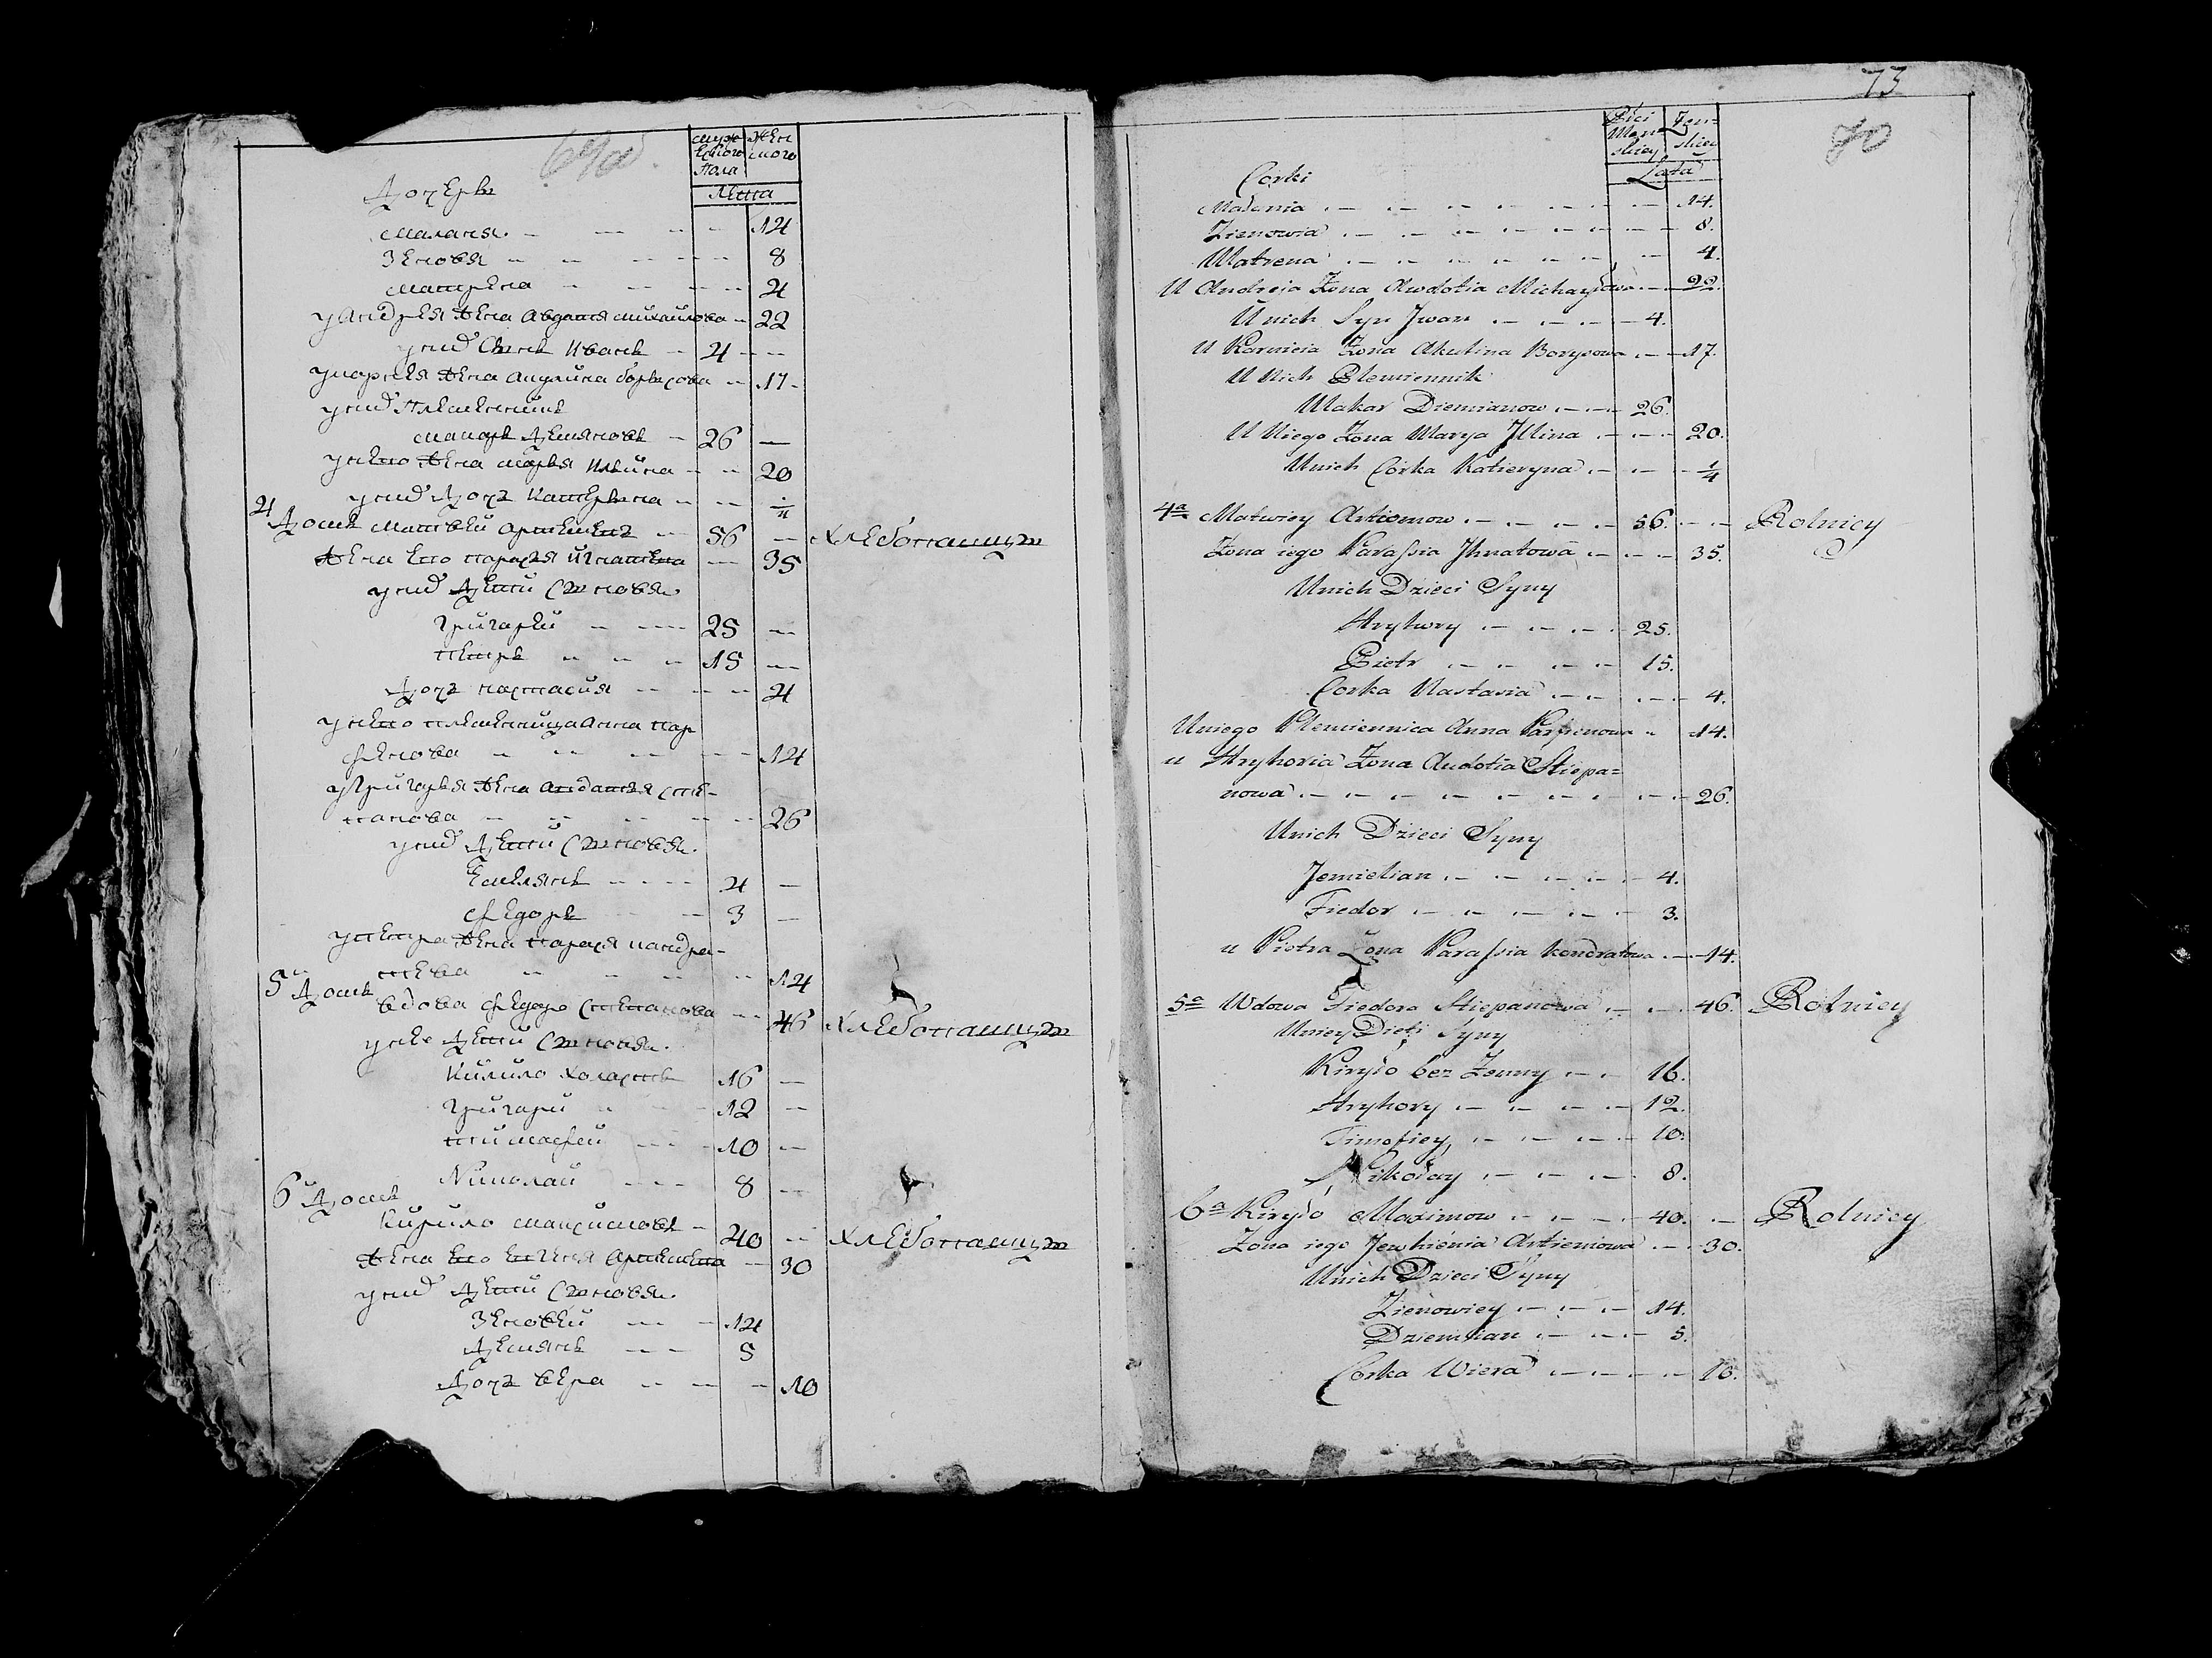 мужескаго Пола
женскаго
Лѣта
Дочеры
Маланя 14
Зеновя 8
Матрена 4
у Андрея жена Авдатя михайлова 22
у них Сынъ Иванъ 4
жена Акулина борысова 17
у них Племенникъ
Макаръ Демяновъ 26
у него жена марья Ильина 20
у них дочь Катерына 1/4
4
Домъ Матвей Артемевъ 56 Хлебопашцы
жена его парася Игнатева 35
у них дети Сыновя
григарей 25
петръ 15
дочь настасия 4
у него племенница Анна пар
фенова 14
у григарья жена Авдатья сте-
панова 26
у них дети Сыновя
Емелянъ 4
Федоръ 3
у петра жена парася кандра-
тева 14
5 Домъ
вдова Федора Степанова 46 Хлебопашцы
у нее дети Сыновя
Кирило холастъ 16
григари 12
тимафей 10
Николай 8
6 Домъ
Кирило максимовъ 40 Хлебопашцы
жена его Евгеня Артемева 30
у них дети Сыновя
Зеновей 14
Демянъ 5
дочь вера 10
73
70
Płci Męskiey Żenskiey
Lata
Corki
Malania 14.
Zienowia 8.
Matrena 4.
U Andreia Żona Awdotia Michayłowa 22.
U nich Syn Jwan 4.
U Karnieia Żona Akulina Borysowa 17.
U Nich Plemiennik
Makar Diemianow 26.
U Niego Żona Marya Jllina 20.
U nich Córka Katieryna 1/4
4a Matwiey Artiomow 56. Rolnicy
Żona iego Parassia Jhnatowa 35.
U nich Dzieci Syny
Hryhory 25.
Piotr 15.
Corka Nastasia 4.
U niego Plemiennica Anna Parfienowa 14.
u Hryhoria Żona Audotia Stiepa=
nowa 26.
Unich Dzieci Syny
Jemielian 4.
Fiedor 3.
u Piotra Żona Parassia Kondratowa 14.
5a Wdowa Fiedora Stiepanowa 46. Rolnicy
Uniey Dieti Syny
Kiryło bez Żenny 16.
Hryhory 12.
Timofiey 10.
Nikołay 8.
6a Kiryło Maximow 40. Rolnicy
Żona iego Jewhienia Artiemiowa 30.
Unich Dzieci Syny
Zienowiey 14.
Dziemian 5.
Corka Wiera 10.